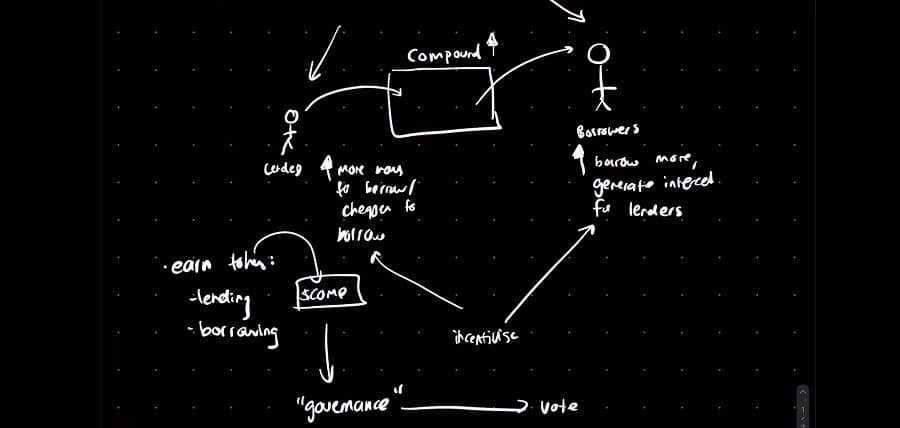 Compound
Borrowers
Lender
more ways
to borrow/
cheaper to
borrow
borrow more,
generate interest
for lenders
• earn token:
- lending
- borrowing
$COMP
incentivise
"governance"
vote